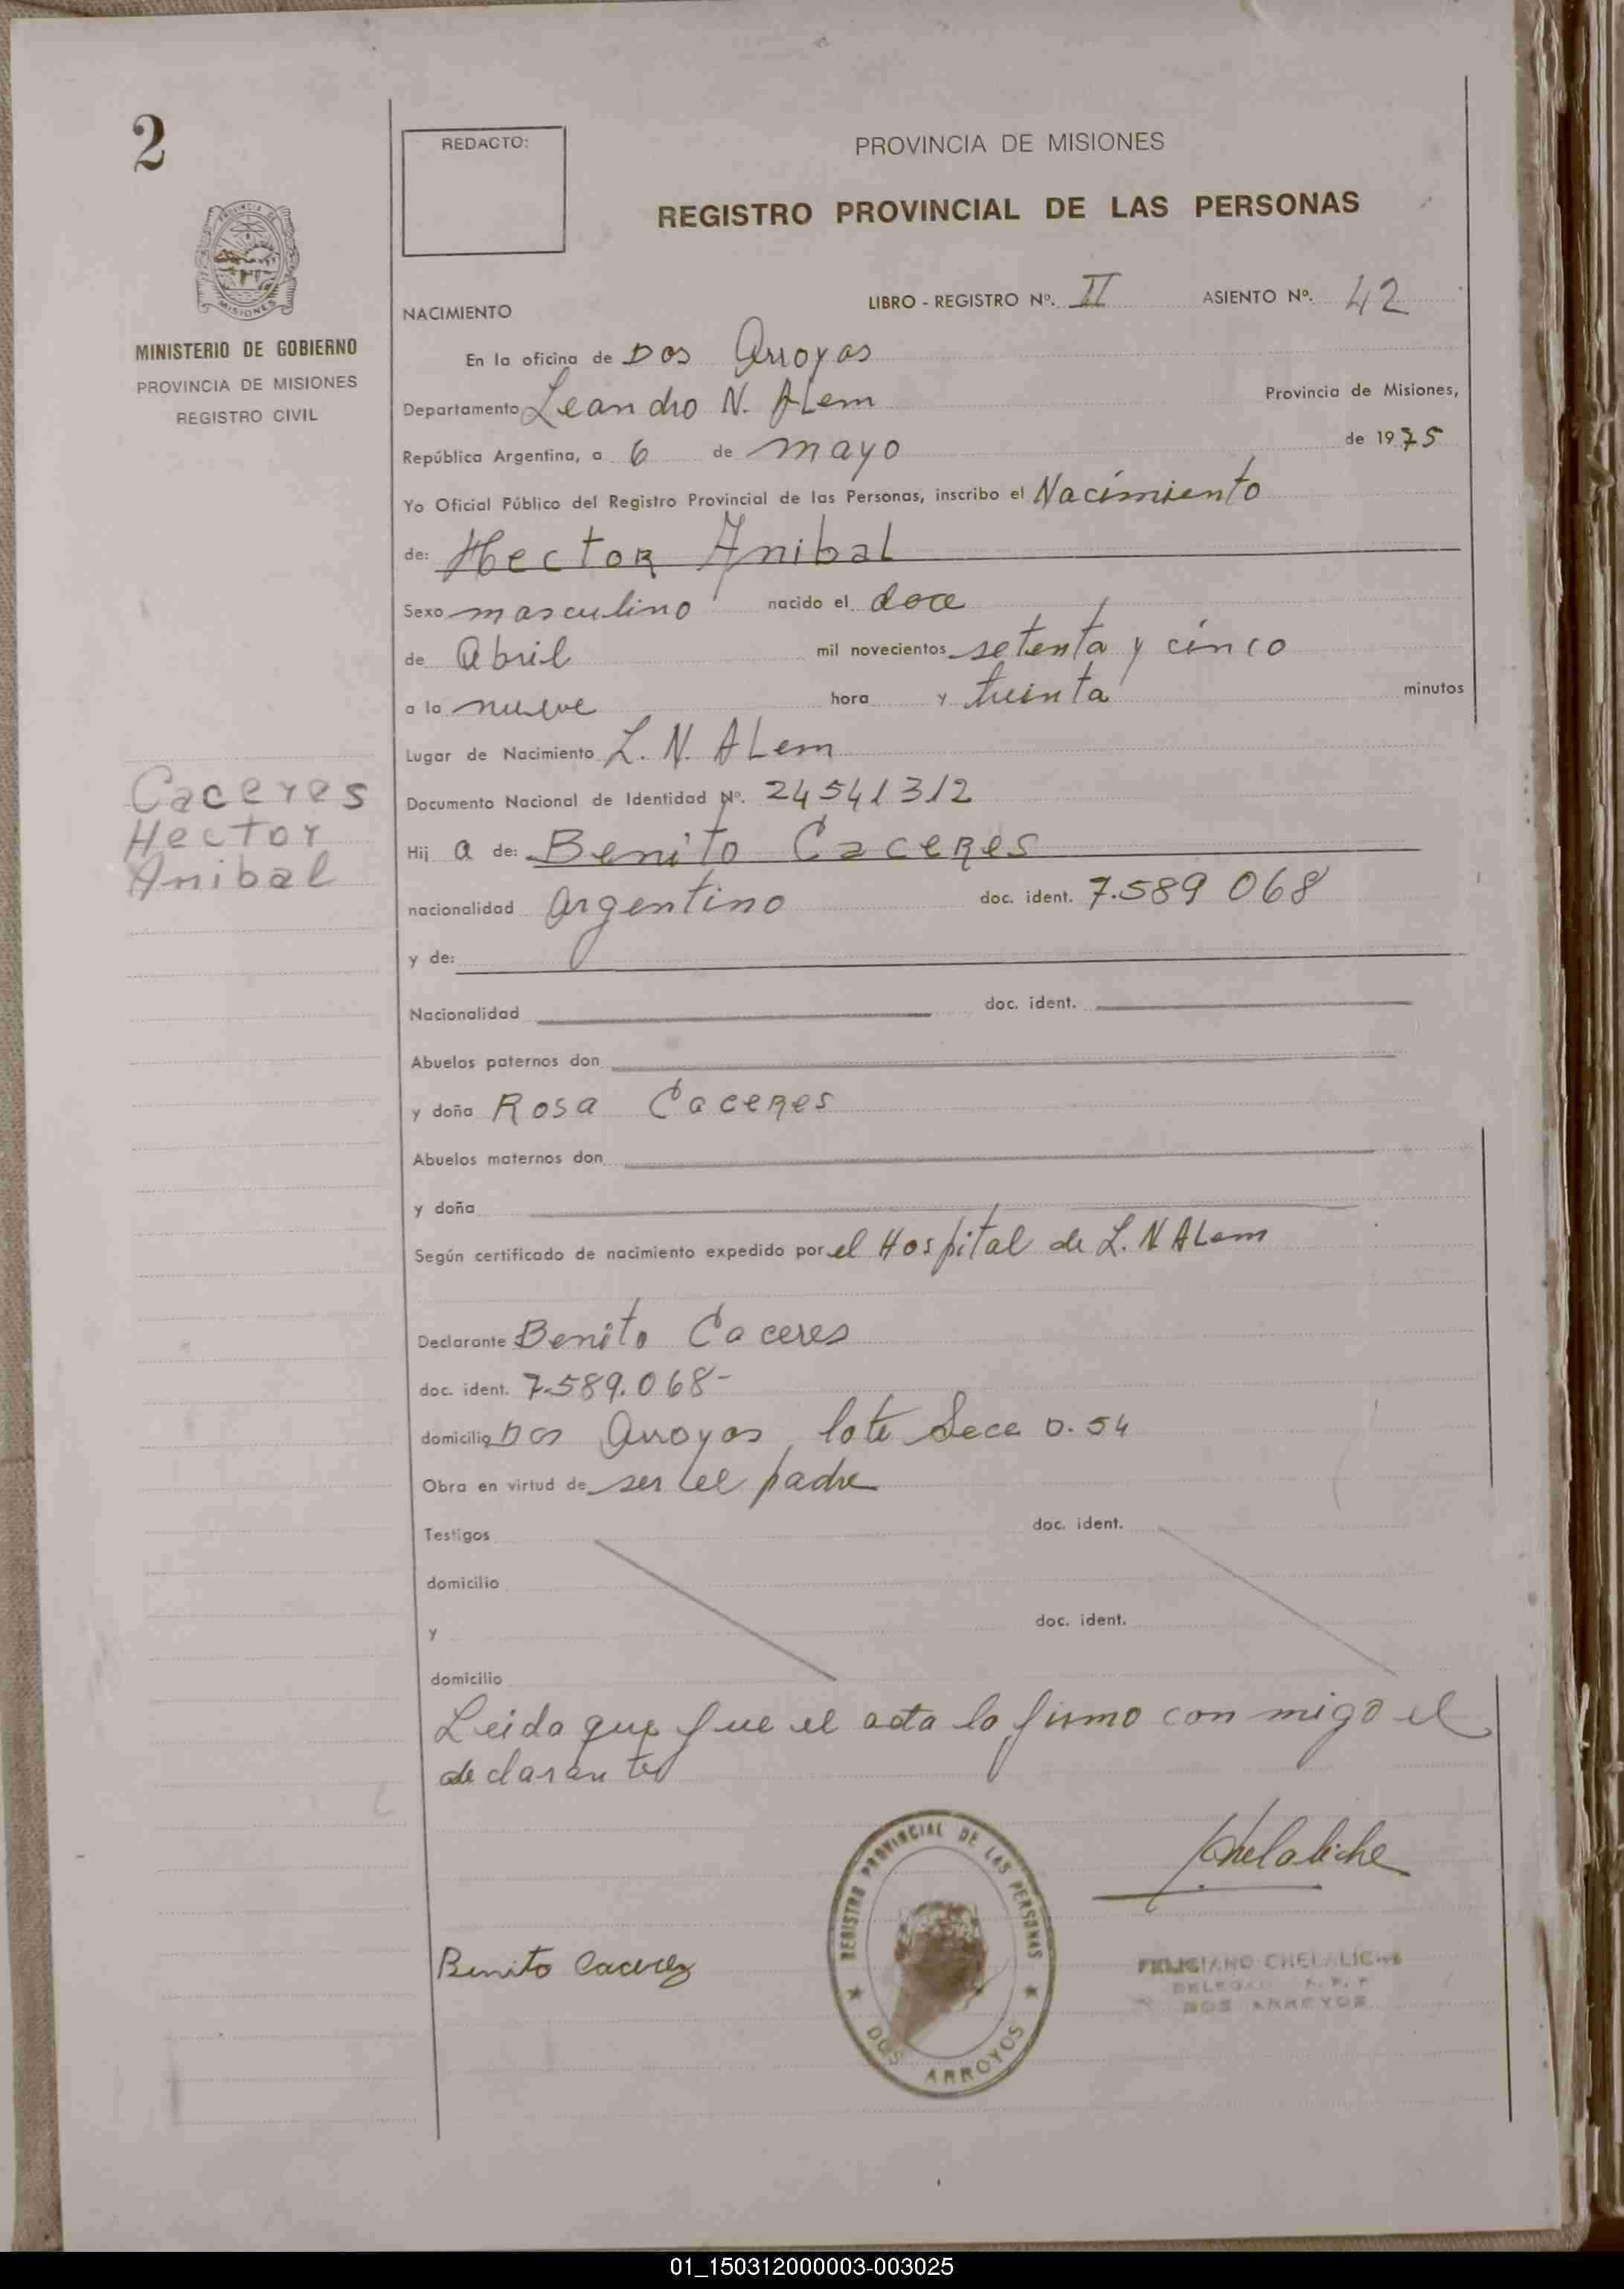 2
REDACTO:
PROVINCIA DE MISIONES
REGISTRO PROVINCIAL DE LAS PERSONAS
PROVINCIA DE
MISIONES
MINISTERIO DE GOBIERNO
PROVINCIA DE MISIONES
REGISTRO CIVIL
NACIMIENTO LIBRO - REGISTRO Nº. II ASIENTO Nº. 42
En la oficina de Dos Arroyos
Departamento Leandro N. ALem Provincia de Misiones,
República Argentina, a 6 de mayo de 1975
Yo Oficial Público del Registro Provincial de las Personas, inscribo el Nacimiento
de: Hector Anibal
Sexo masculino nacido el doce
de Abril mil novecientos setenta y cinco
a la nueve hora y treinta minutos
Lugar de Nacimiento L. N. ALem
Caceres
Hector
Anibal
Documento Nacional de Identidad Nº. 24541312
Hij o de: Benito Caceres
nacionalidad argentino doc. ident. 7.589 068
y de:
Nacionalidad doc. ident.
Abuelos paternos don
y doña Rosa Caceres
Abuelos maternos don
y doña
Según certificado de nacimiento expedido por el Hospital de L. N ALem
Declarante Benito Caceres
doc. ident. 7.589.068-
domicilio Dos Arroyos, lote 0.54
Obra en virtud de ser el padre
Testigos doc. ident.
domicilio
y doc. ident.
domicilio
Leida que fue el acta lo firmo con migo el
declarante
Chelaliche
Benito Caceres
REGISTRO PROVINCIAL DE LAS PERSONAS
DOS ARROYOS
FELICIANO CHELALICHE
DOS ARROYOS
01_150312000003-003025